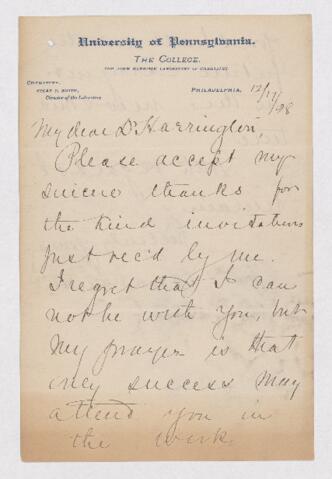 University of Pennsylvania.
The College.
The John Harrison Laboratory of Chemistry.
Chemistry.
Edgar F. Smith,
Director of the Laboratory
Philadelphia, 12/17/98
My dear Dr Harrington,
Please accept my
sincere thanks for
the kind invitation
just rec'd by me.
I regret that I can
not be with you, but
my prayer is that
every success may
attend you in
the work.